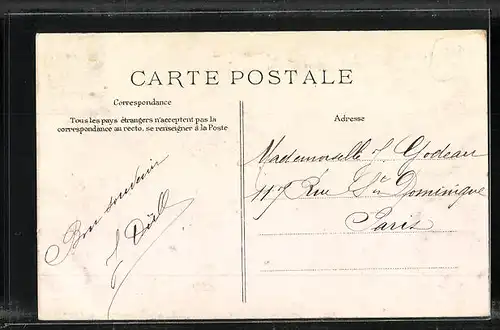 CARTE POSTALE
Correspondance
Tous les pays étrangers n'acceptent pas la
correspondance au recto, se renseigner à la Poste
Adresse
Bon souvenir
Mademoiselle J Godeau
117 Rue St Dominique
Paris